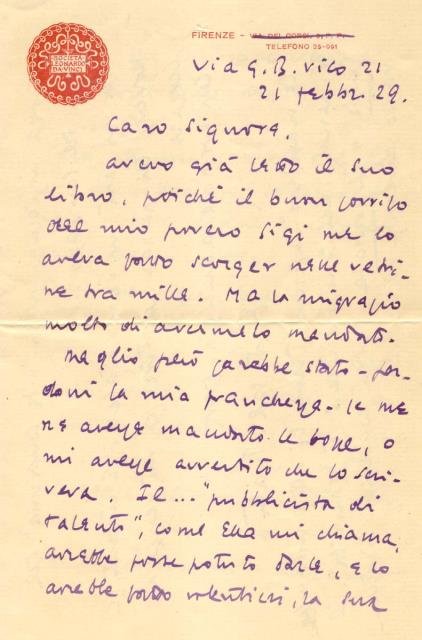 SOCIETÀ
LEONARDO
DA VINCI
FIRENZE - VIA DEL CORSO,
TELEFONO 25-091
Via G. B. Vico 21
21 febbr. 29.
Caro Signore,
avevo già letto il suo
libro, poiché il buon sorriso
del mio povero Gigi me lo
aveva fatto scorger nelle vetri-
ne tra mille. Ma la ringrazio
molto di avermelo mandato.
Meglio però sarebbe stato - per-
doni la mia franchezza - se me
ne avesse mandato le bozze, o
mi avesse avvertito che lo scri-
veva. Il ... "pubblicista di
talento", come Ella mi chiama,
avrebbe forse potuto darle, e lo
avrebbe fatto volentieri, la sua